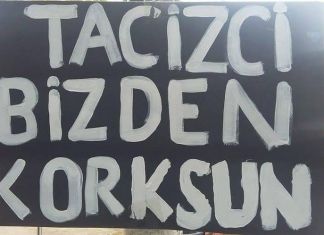 TACİZCİ
BİZDEN
KORKSUN